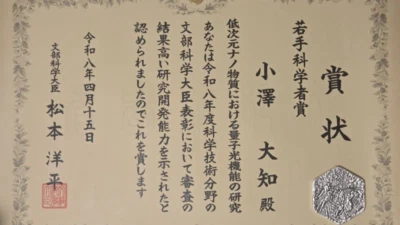 賞状
若手科学者賞
小澤 大知 殿
低次元ナノ物質における量子光機能の研究
あなたは令和八年度科学技術分野の
文部科学大臣表彰において審査の
結果高い研究開発能力を示されたと
認められましたのでこれを賞します
令和八年四月十五日
文部科学大臣 松本 洋平